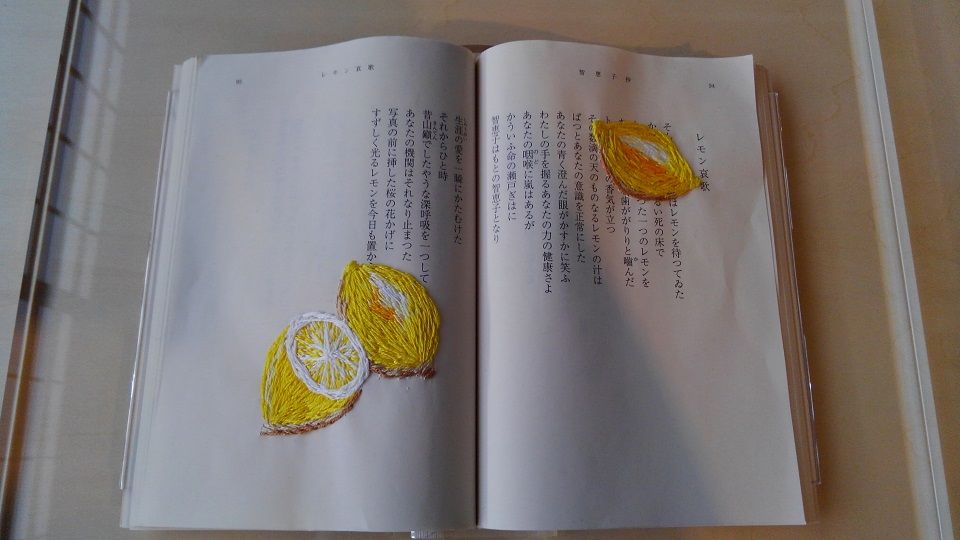 智恵子抄
94
レモン哀歌
そ はレモンを待つてゐた
か るい死の床で
つた一つのレモンを
歯ががりりと噛んだ
ト の香気が立つ
そ 滴の天のものなるレモンの汁は
ぱつとあなたの意識を正常にした
あなたの青く澄んだ眼がかすかに笑ふ
わたしの手を握るあなたの力の健康さよ
あなたの咽喉に嵐はあるが
かういふ命の瀬戸ぎはに
智恵子はもとの智恵子となり
レモン哀歌
95
生涯の愛を一瞬にかたむけた
それからひと時
昔山巓でしたやうな深呼吸を一つして
あなたの機関はそれなり止まつた
写真の前に挿した桜の花かげに
すずしく光るレモンを今日も置か